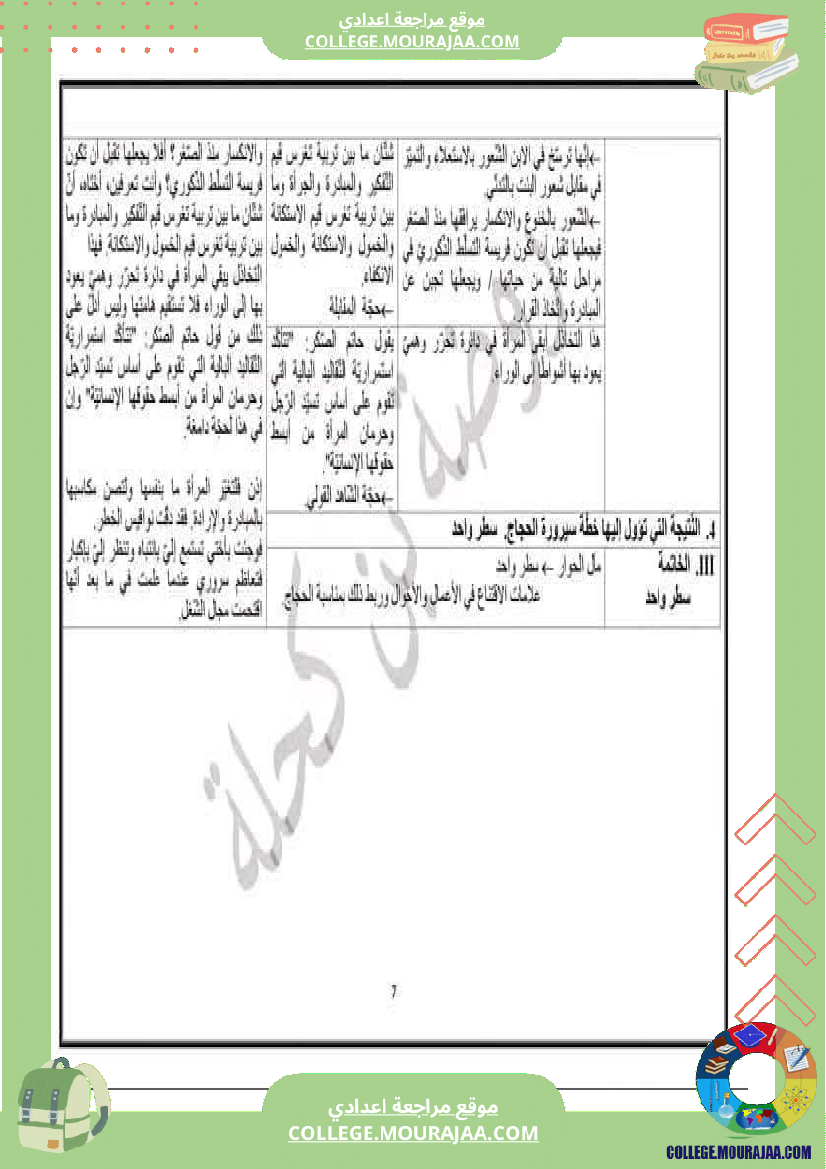 موقع مراجعة اعدادي
COLLEGE.MOURAJAA.COM
←إنّها ترسّخ في الابن الشّعور بالاستعلاء والتميّز
في مقابل شعور البنت بالتدنّي.
←الشّعور بالخنوع والانكسار يرافقها منذ الصّغر
فيجعلها تقبل أن تكون فريسة التسلّط الذّكوريّ في
مراحل تالية من حياتها / ويجعلها تجبن عن
المبادرة واتّخاذ القرار.
شتّان ما بين تربية تغرس قيم
التّفكير والمبادرة والجرأة وما
بين تربية تغرس قيم الاستكانة
والخمول والاستكانة والخمول
الانكفاء.
←حجّة المقابلة
هذا التخاذل أبقى المرأة في دائرة تحرّر وهميّ
يعود بها أشواطا إلى الوراء.
يقول حاتم الصّكر: "تتأكّد
استمراريّة التّقاليد البالية التي
تقوم على أساس تسيّد الرّجل
وحرمان المرأة من أبسط
حقوقها الإنسانيّة".
←حجّة الشّاهد القولي.
والانكسار منذ الصّغر؟ أفلا يجعلها تقبل أن تكون
فريسة التسلّط الذّكوري؟ وأنت تعرفين، أختاه، أنّ
شتّان ما بين تربية تغرس قيم التّفكير والمبادرة وما
بين تربية تغرس قيم الخمول والاستكانة. فهذا
التخاذل يبقي المرأة في دائرة تحرّر وهميّ يعود
بها إلى الوراء فلا تستقيم هامتها وليس أدلّ على
ذلك من قول حاتم الصّكر: "تتأكّد استمراريّة
التّقاليد البالية التي تقوم على أساس تسيّد الرّجل
وحرمان المرأة من أبسط حقوقها الإنسانيّة" وإن
في هذا لحجّة دامغة.
إذن فلتغيّر المرأة ما بنفسها ولتصن مكاسبها
بالمبادرة والإرادة. فقد دقّت نواقيس الخطر.
فوجئت بأختي تستمع إليّ بانتباه وتنظر إليّ بإكبار
فتعاظم سروري عندما علمت في ما بعد أنّها
اقتحمت مجال الشّغل.
4. النّتيجة التي تؤول إليها خطّة سيرورة الحجاج. سطر واحد
III. الخاتمة
سطر واحد
مآل الحوار ← سطر واحد
علامات الاقتناع في الأعمال والأحوال وربط ذلك بمناسبة الحجاج.
7
موقع مراجعة اعدادي
COLLEGE.MOURAJAA.COM
COLLEGE.MOURAJAA.COM